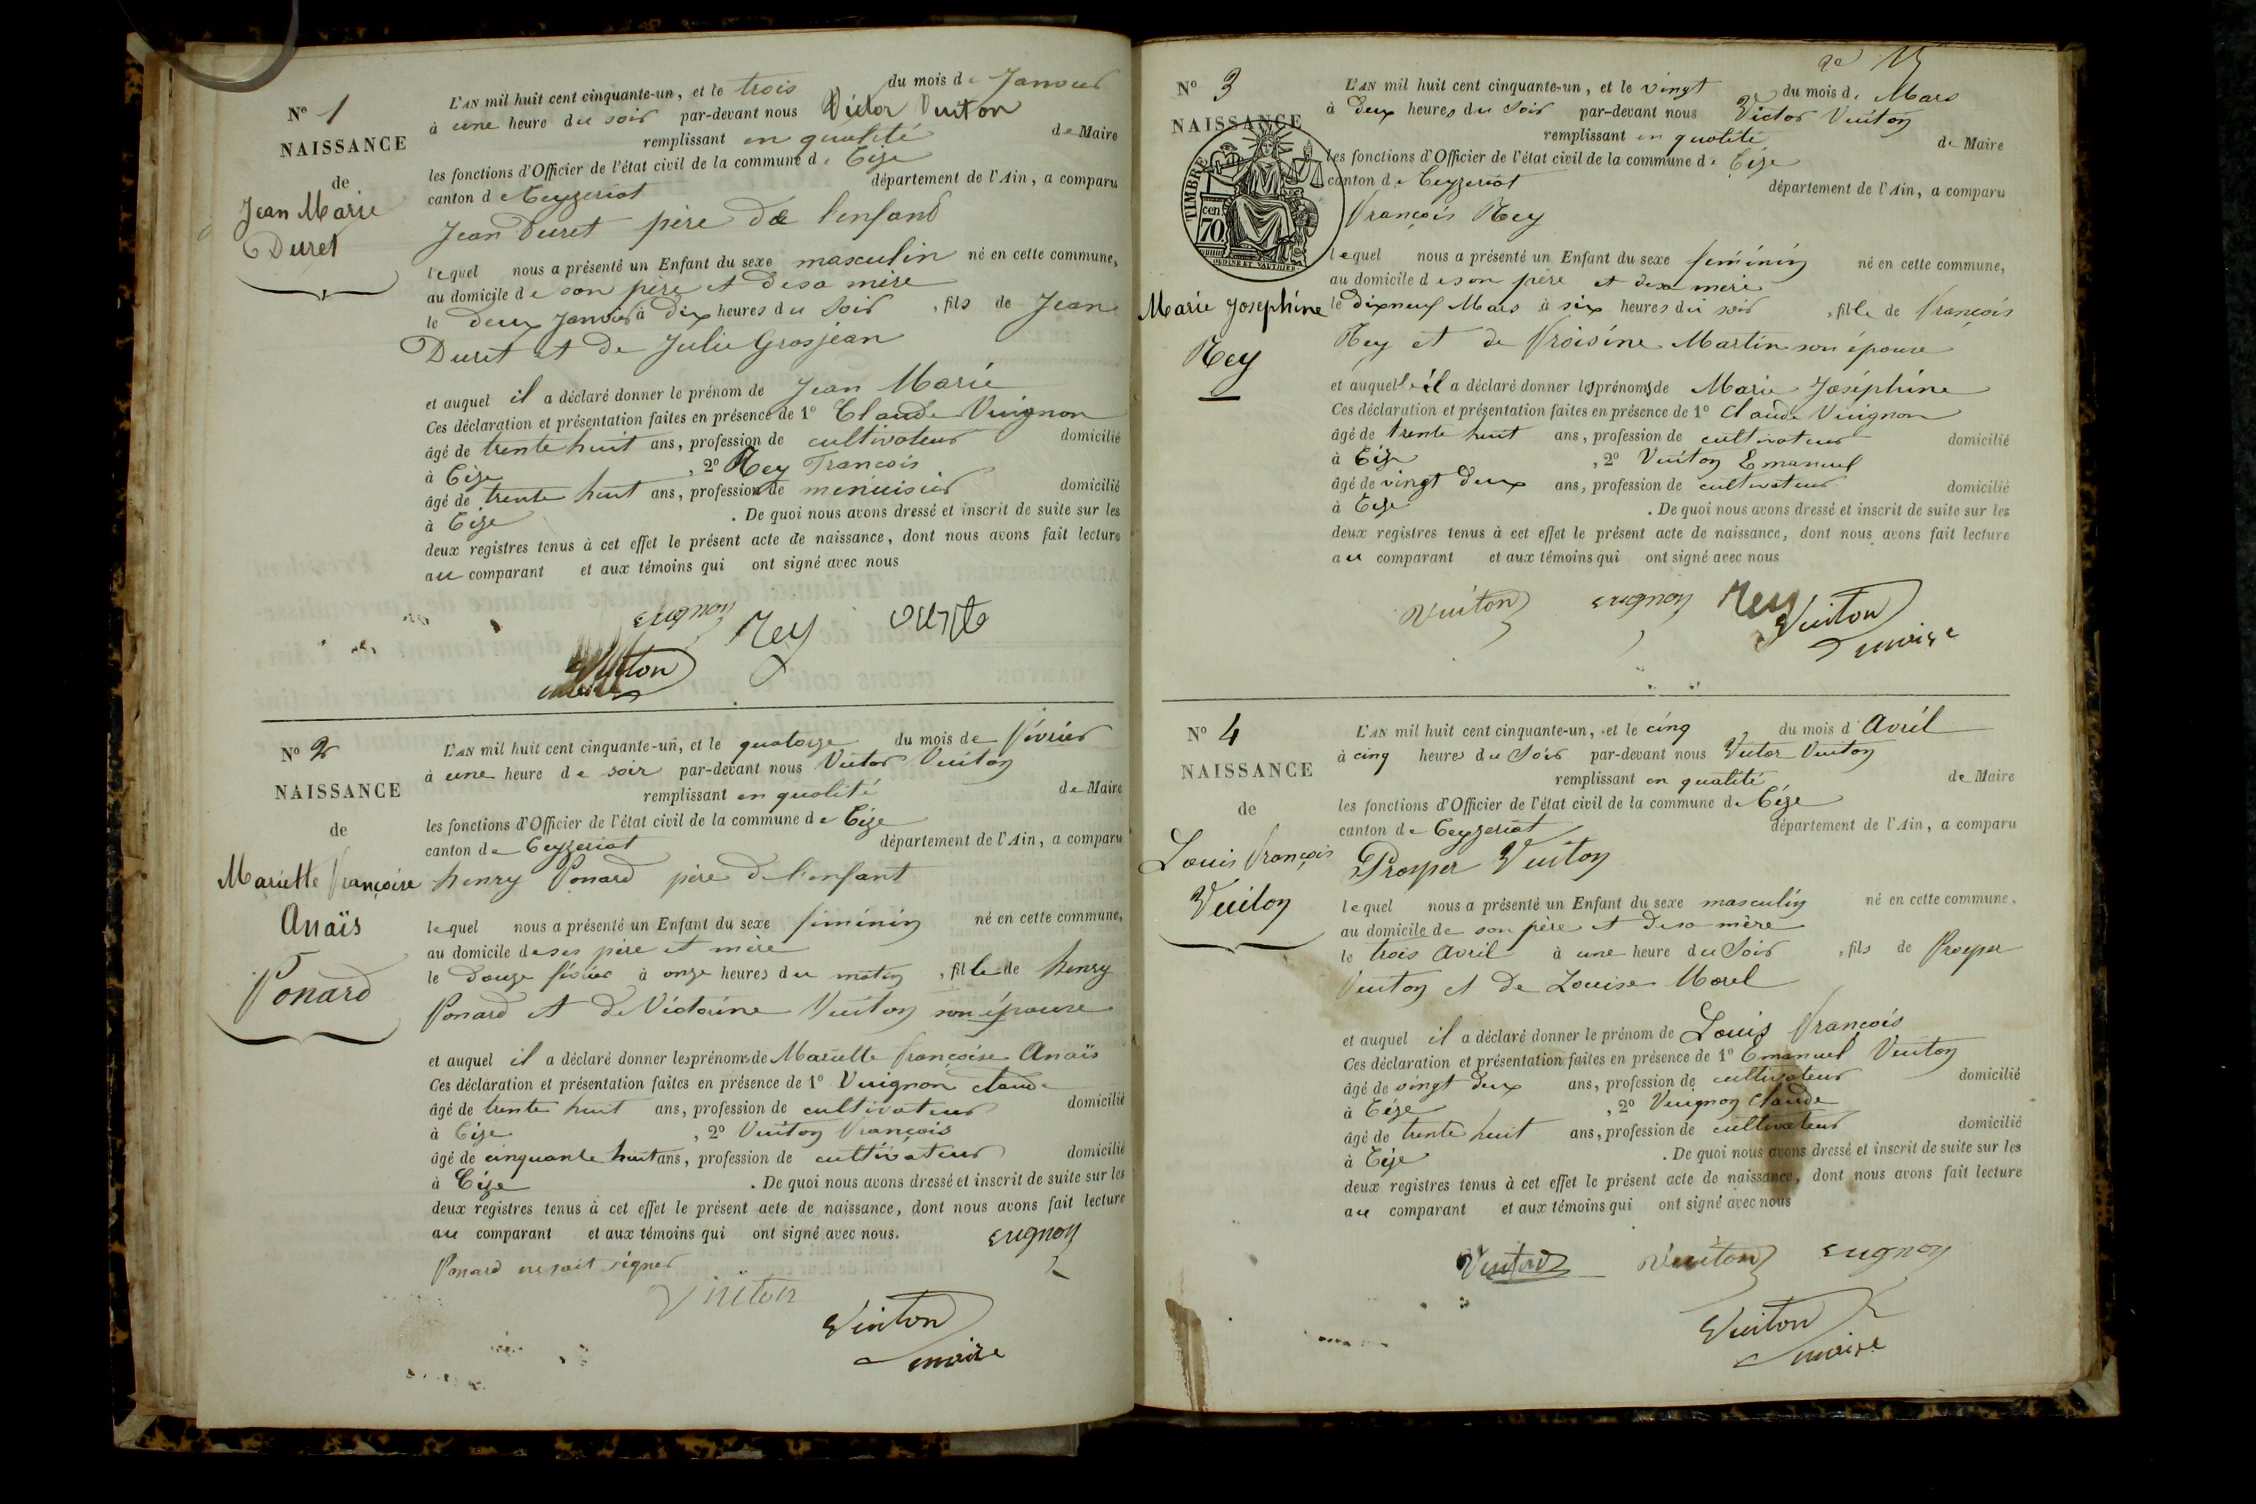 N° 1
NAISSANCE
de
Jean Marie
Duret
L'AN mil huit cent cinquante-un, et le trois du mois de Janvier
à une heure du soir par-devant nous Victor Vuiton
remplissant en qualité de Maire
les fonctions d'Officier de l'état civil de la commune de Cize
canton de Ceyzeriat département de l'Ain, a comparu
Jean Duret père de l'enfant
lequel nous a présenté un Enfant du sexe masculin né en cette commune,
au domicile de son père et de sa mère
le deux Janvier à dix heures du soir, fils de Jean
Duret et de Julie Grosjean
et auquel il a déclaré donner le prénom de Jean Marie
Ces déclaration et présentation faites en présence de 1° Claude Vuignon
âgé de trente huit ans, profession de cultivateur domicilié
à Cize, 2° Rey Francois
âgé de trente huit ans, profession de menuisier domicilié
à Cize. De quoi nous avons dressé et inscrit de suite sur les
deux registres tenus à cet effet le présent acte de naissance, dont nous avons fait lecture
au comparant et aux témoins qui ont signé avec nous
Rey
Vuiton
maire
N° 2
NAISSANCE
de
Mariette françoise
Anaïs
Ponard
L'AN mil huit cent cinquante-un, et le quatorze du mois de février
à une heure de soir par-devant nous Victor Vuiton
remplissant en qualité de Maire
les fonctions d'Officier de l'état civil de la commune de Cize
canton de Ceyzeriat département de l'Ain, a comparu
henry Ponard père de l'enfant
lequel nous a présenté un Enfant du sexe féminin né en cette commune,
au domicile de ses père et mère
le douze février à onze heures du matin, fille de henry
Ponard et de Victorine Vuiton son épouse
et auquel il a déclaré donner les prénoms de Mariette françoise Anaïs
Ces déclaration et présentation faites en présence de 1° Vuignon claude
âgé de trente huit ans, profession de cultivateur domicilié
à Cize, 2° Vuiton François
âgé de cinquante huit ans, profession de cultivateur domicilié
à Cize. De quoi nous avons dressé et inscrit de suite sur les
deux registres tenus à cet effet le présent acte de naissance, dont nous avons fait lecture
au comparant et aux témoins qui ont signé avec nous.
Ponard ne sait signer
Vuiton
Vuiton
maire
N° 3
NAISSANCE
TIMBRE
cen
70
Marie Josephine
Rey
L'AN mil huit cent cinquante-un, et le vingt du mois de Mars
à deux heures du soir par-devant nous Victor Vuiton
remplissant en qualité de Maire
les fonctions d'Officier de l'état civil de la commune de Cize
canton de Ceyzeriat département de l'Ain, a comparu
François Rey
lequel nous a présenté un Enfant du sexe féminin né en cette commune,
au domicile de son père et de sa mère
le dix neuf Mars à six heures du soir, fille de François
Rey et de Froisine Martin son épouse
et auquelle il a déclaré donner les prénoms de Marie Joséphine
Ces déclaration et présentation faites en présence de 1° Claude Vuignon
âgé de trente huit ans, profession de cultivateur domicilié
à Cize, 2° Vuiton Emanuel
âgé de vingt deux ans, profession de cultivateur domicilié
à Cize. De quoi nous avons dressé et inscrit de suite sur les
deux registres tenus à cet effet le présent acte de naissance, dont nous avons fait lecture
au comparant et aux témoins qui ont signé avec nous
Vuiton Rey
Vuiton
maire
N° 4
NAISSANCE
de
Louis françois
Vuiton
L'AN mil huit cent cinquante-un, et le cinq du mois d'Avril
à cinq heures du soir par-devant nous Victor Vuiton
remplissant en qualité de Maire
les fonctions d'Officier de l'état civil de la commune de Cize
canton de Ceyzeriat département de l'Ain, a comparu
Prosper Vuiton
lequel nous a présenté un Enfant du sexe masculin né en cette commune,
au domicile de son père et de sa mère
le trois Avril à une heure du soir, fils de Prosper
Vuiton et de Louise Morel
et auquel il a déclaré donner le prénom de Louis françois
Ces déclaration et présentation faites en présence de 1° Emanuel Vuiton
âgé de vingt deux ans, profession de cultivateur domicilié
à Cize, 2° Vuignon Claude
âgé de trente huit ans, profession de cultivateur domicilié
à Cize. De quoi nous avons dressé et inscrit de suite sur les
deux registres tenus à cet effet le présent acte de naissance, dont nous avons fait lecture
au comparant et aux témoins qui ont signé avec nous
Vuiton Vuiton
Vuiton
maire